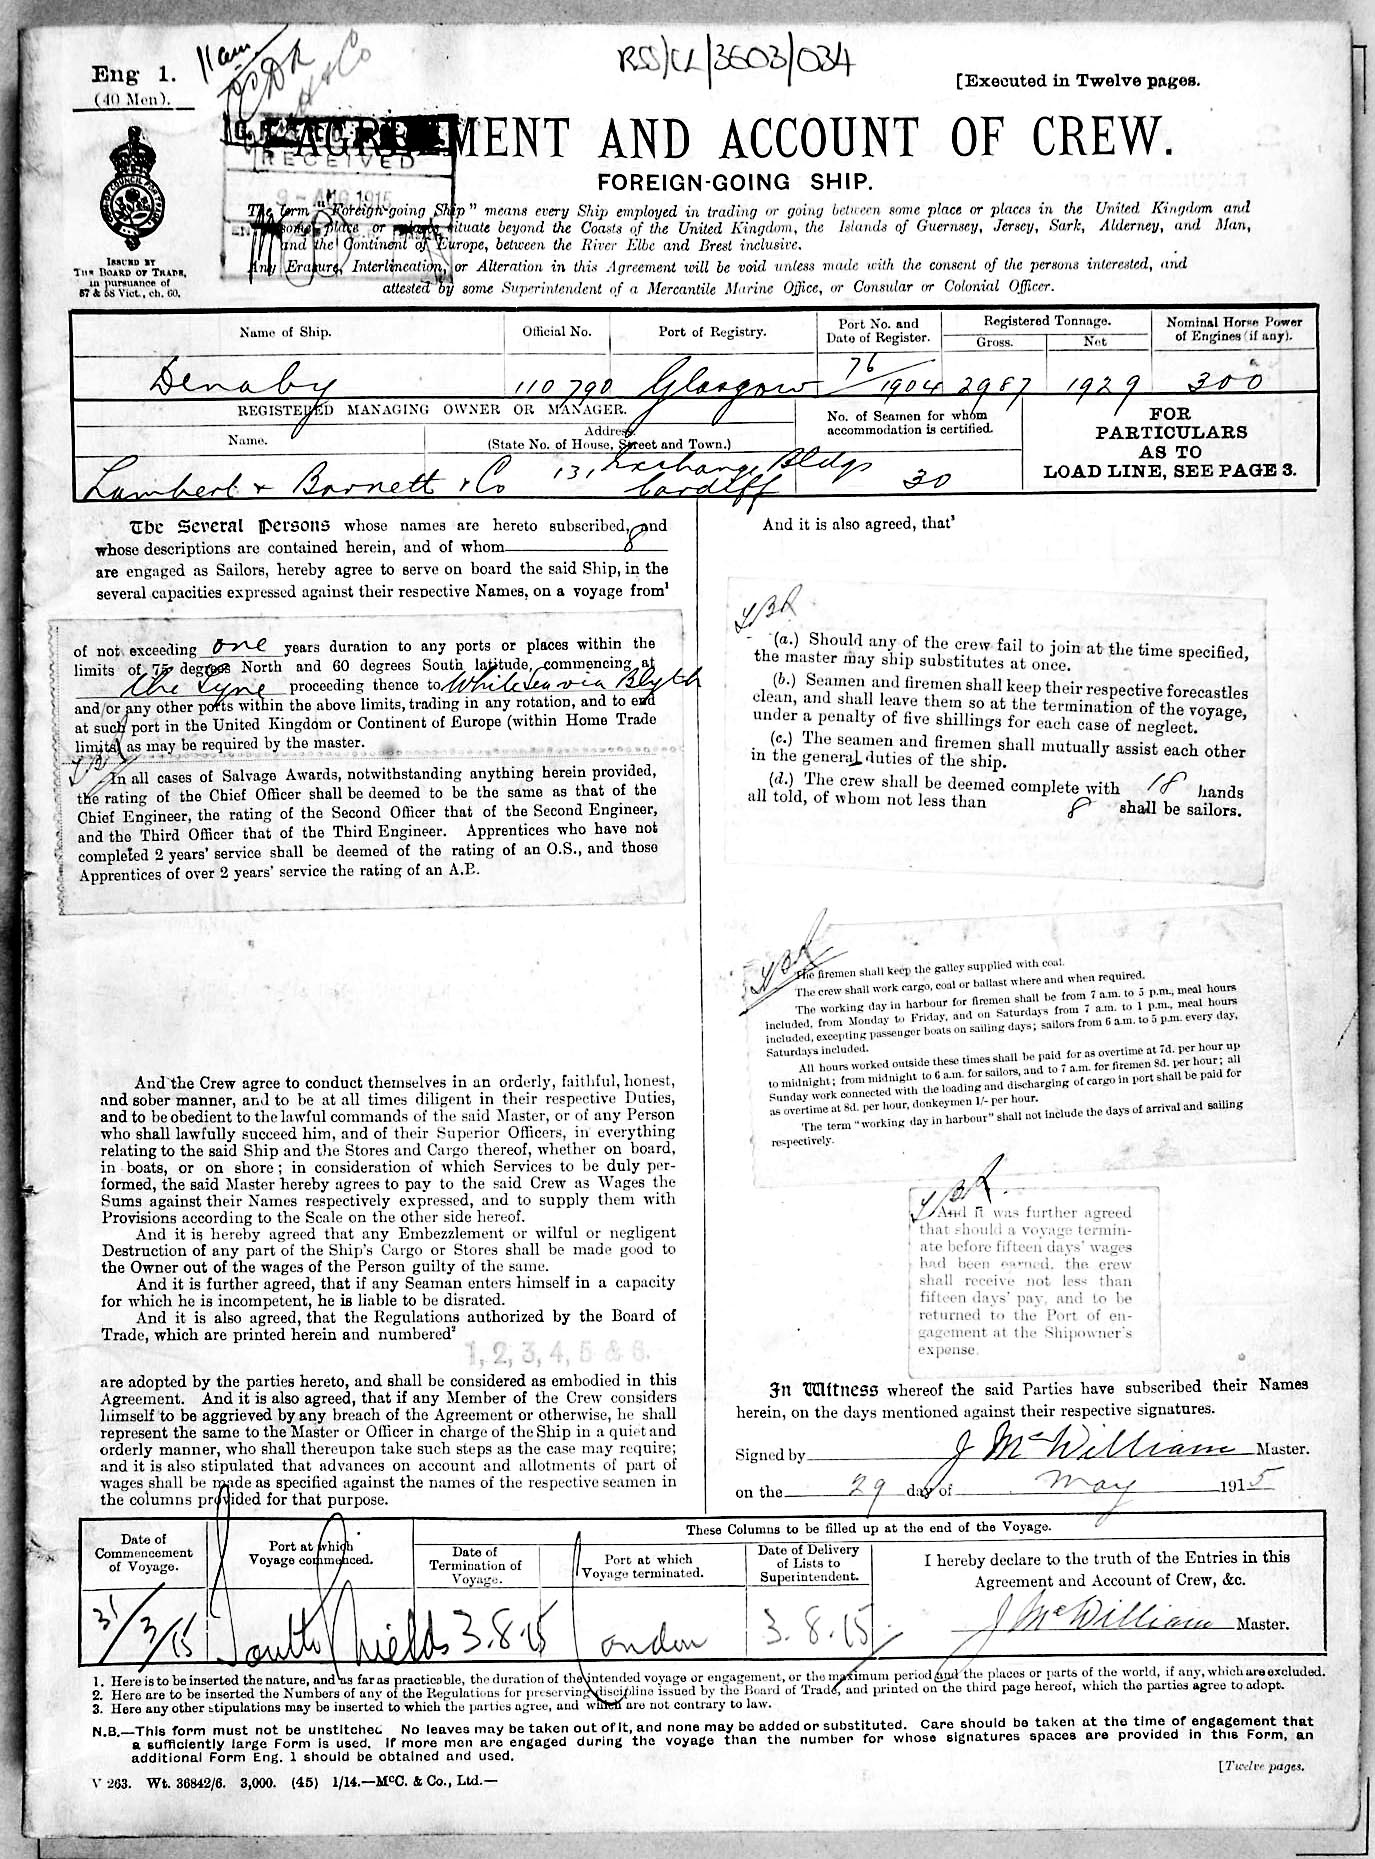 RSS/CL/3603/034
Eng 1.
(40 Men).
11am
[Executed in Twelve pages.
AGREEMENT AND ACCOUNT OF CREW.
RECEIVED
FOREIGN-GOING SHIP.
AUG 1915
The term "Foreign-going Ship" means every Ship employed in trading or going between some place or places in the United Kingdom and
some place or places situate beyond the Coasts of the United Kingdom, the Islands of Guernsey, Jersey, Sark, Alderney, and Man,
and the Continent of Europe, between the River Elbe and Brest inclusive.
Any Erasure, Interlineation, or Alteration in this Agreement will be void unless made with the consent of the persons interested, and
attested by some Superintendent of a Mercantile Marine Office, or Consular or Colonial Officer.
ISSUED BY
THE BOARD OF TRADE,
in pursuance of
57 & 58 Vict., ch. 60.
Name of Ship.
Official No.
Port of Registry.
Port No. and
Date of Register.
Registered Tonnage.
Gross.
Net
Nominal Horse Power
of Engines (if any).
Denaby
110790
Glasgow
76/1904
2987
1929
300
REGISTERED MANAGING OWNER OR MANAGER.
Name.
Address.
(State No. of House, Street and Town.)
No. of Seamen for whom
accommodation is certified.
FOR
PARTICULARS
AS TO
LOAD LINE, SEE PAGE 3.
Lambert & Barnett & Co
131 Exchange Bldgs
Cardiff
30
The Several Persons whose names are hereto subscribed, and
whose descriptions are contained herein, and of whom 8
are engaged as Sailors, hereby agree to serve on board the said Ship, in the
several capacities expressed against their respective Names, on a voyage from¹
of not exceeding one years duration to any ports or places within the
limits of 75 degrees North and 60 degrees South latitude, commencing at
the Tyne proceeding thence to White Sea via Blyth
and/or any other ports within the above limits, trading in any rotation, and to end
at such port in the United Kingdom or Continent of Europe (within Home Trade
limits) as may be required by the master.
In all cases of Salvage Awards, notwithstanding anything herein provided,
the rating of the Chief Officer shall be deemed to be the same as that of the
Chief Engineer, the rating of the Second Officer that of the Second Engineer,
and the Third Officer that of the Third Engineer. Apprentices who have not
completed 2 years' service shall be deemed of the rating of an O.S., and those
Apprentices of over 2 years' service the rating of an A.B.
And the Crew agree to conduct themselves in an orderly, faithful, honest,
and sober manner, and to be at all times diligent in their respective Duties,
and to be obedient to the lawful commands of the said Master, or of any Person
who shall lawfully succeed him, and of their Superior Officers, in everything
relating to the said Ship and the Stores and Cargo thereof, whether on board,
in boats, or on shore; in consideration of which Services to be duly per-
formed, the said Master hereby agrees to pay to the said Crew as Wages the
Sums against their Names respectively expressed, and to supply them with
Provisions according to the Scale on the other side hereof.
And it is hereby agreed that any Embezzlement or wilful or negligent
Destruction of any part of the Ship's Cargo or Stores shall be made good to
the Owner out of the wages of the Person guilty of the same.
And it is further agreed, that if any Seaman enters himself in a capacity
for which he is incompetent, he is liable to be disrated.
And it is also agreed, that the Regulations authorized by the Board of
Trade, which are printed herein and numbered²
1, 2, 3, 4, 5 & 6.
are adopted by the parties hereto, and shall be considered as embodied in this
Agreement. And it is also agreed, that if any Member of the Crew considers
himself to be aggrieved by any breach of the Agreement or otherwise, he shall
represent the same to the Master or Officer in charge of the Ship in a quiet and
orderly manner, who shall thereupon take such steps as the case may require;
and it is also stipulated that advances on account and allotments of part of
wages shall be made as specified against the names of the respective seamen in
the columns provided for that purpose.
And it is also agreed, that³
(a.) Should any of the crew fail to join at the time specified,
the master may ship substitutes at once.
(b.) Seamen and firemen shall keep their respective forecastles
clean, and shall leave them so at the termination of the voyage,
under a penalty of five shillings for each case of neglect.
(c.) The seamen and firemen shall mutually assist each other
in the general duties of the ship.
(d.) The crew shall be deemed complete with 18 hands
all told, of whom not less than 8 shall be sailors.
The firemen shall keep the galley supplied with coal.
The crew shall work cargo, coal or ballast where and when required.
The working day in harbour for firemen shall be from 7 a.m. to 5 p.m., meal hours
included, from Monday to Friday, and on Saturdays from 7 a.m. to 1 p.m., meal hours
included, excepting passenger boats on sailing days; sailors from 6 a.m. to 5 p.m. every day,
Saturdays included.
All hours worked outside these times shall be paid for as overtime at 7d. per hour up
to midnight; from midnight to 6 a.m. for sailors, and to 7 a.m. for firemen 8d. per hour; all
Sunday work connected with the loading and discharging of cargo in port shall be paid for
as overtime at 8d. per hour, donkeymen 1/- per hour.
The term "working day in harbour" shall not include the days of arrival and sailing
respectively.
And it was further agreed
that should a voyage termin-
ate before fifteen days' wages
had been earned, the crew
shall receive not less than
fifteen days' pay, and to be
returned to the Port of en-
gagement at the Shipowner's
expense.
In Witness whereof the said Parties have subscribed their Names
herein, on the days mentioned against their respective signatures.
Signed by J McWilliam Master.
on the 29 day of May 1915
Date of
Commencement
of Voyage.
Port at which
Voyage commenced.
These Columns to be filled up at the end of the Voyage.
Date of
Termination of
Voyage.
Port at which
Voyage terminated.
Date of Delivery
of Lists to
Superintendent.
I hereby declare to the truth of the Entries in this
Agreement and Account of Crew, &c.
31/3/15
South Shields
3.8.15
London
3.8.15
J McWilliam Master.
1. Here is to be inserted the nature, and as far as practicable, the duration of the intended voyage or engagement, or the maximum period and the places or parts of the world, if any, which are excluded.
2. Here are to be inserted the Numbers of any of the Regulations for preserving discipline issued by the Board of Trade, and printed on the third page hereof, which the parties agree to adopt.
3. Here any other stipulations may be inserted to which the parties agree, and which are not contrary to law.
N.B.—This form must not be unstitched. No leaves may be taken out of it, and none may be added or substituted. Care should be taken at the time of engagement that
a sufficiently large Form is used. If more men are engaged during the voyage than the number for whose signatures spaces are provided in this Form, an
additional Form Eng. 1 should be obtained and used.
[Twelve pages.
V 263. Wt. 36842/6. 3,000. (45) 1/14.—McC. & Co., Ltd.—